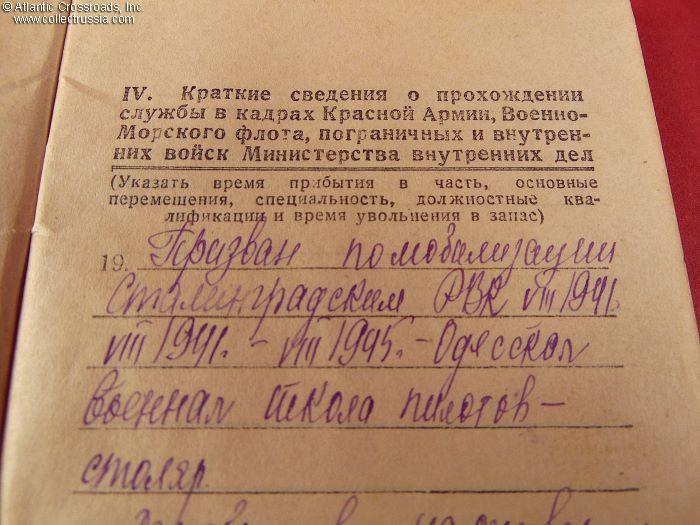 © Atlantic Crossroads, Inc.
www.collectrussia.com
IV. Краткие сведения о прохождении
службы в кадрах Красной Армии, Военно-
Морского флота, пограничных и внутрен-
них войск Министерства внутренних дел
(Указать время прибытия в часть, основные
перемещения, специальность, должностные ква-
лификации и время увольнения в запас)
19. Призван по мобализации
Сталинградским РВК VIII 1941.
VIII 1941. – VIII 1945. – Одесская
военная школа пилотов –
столяр